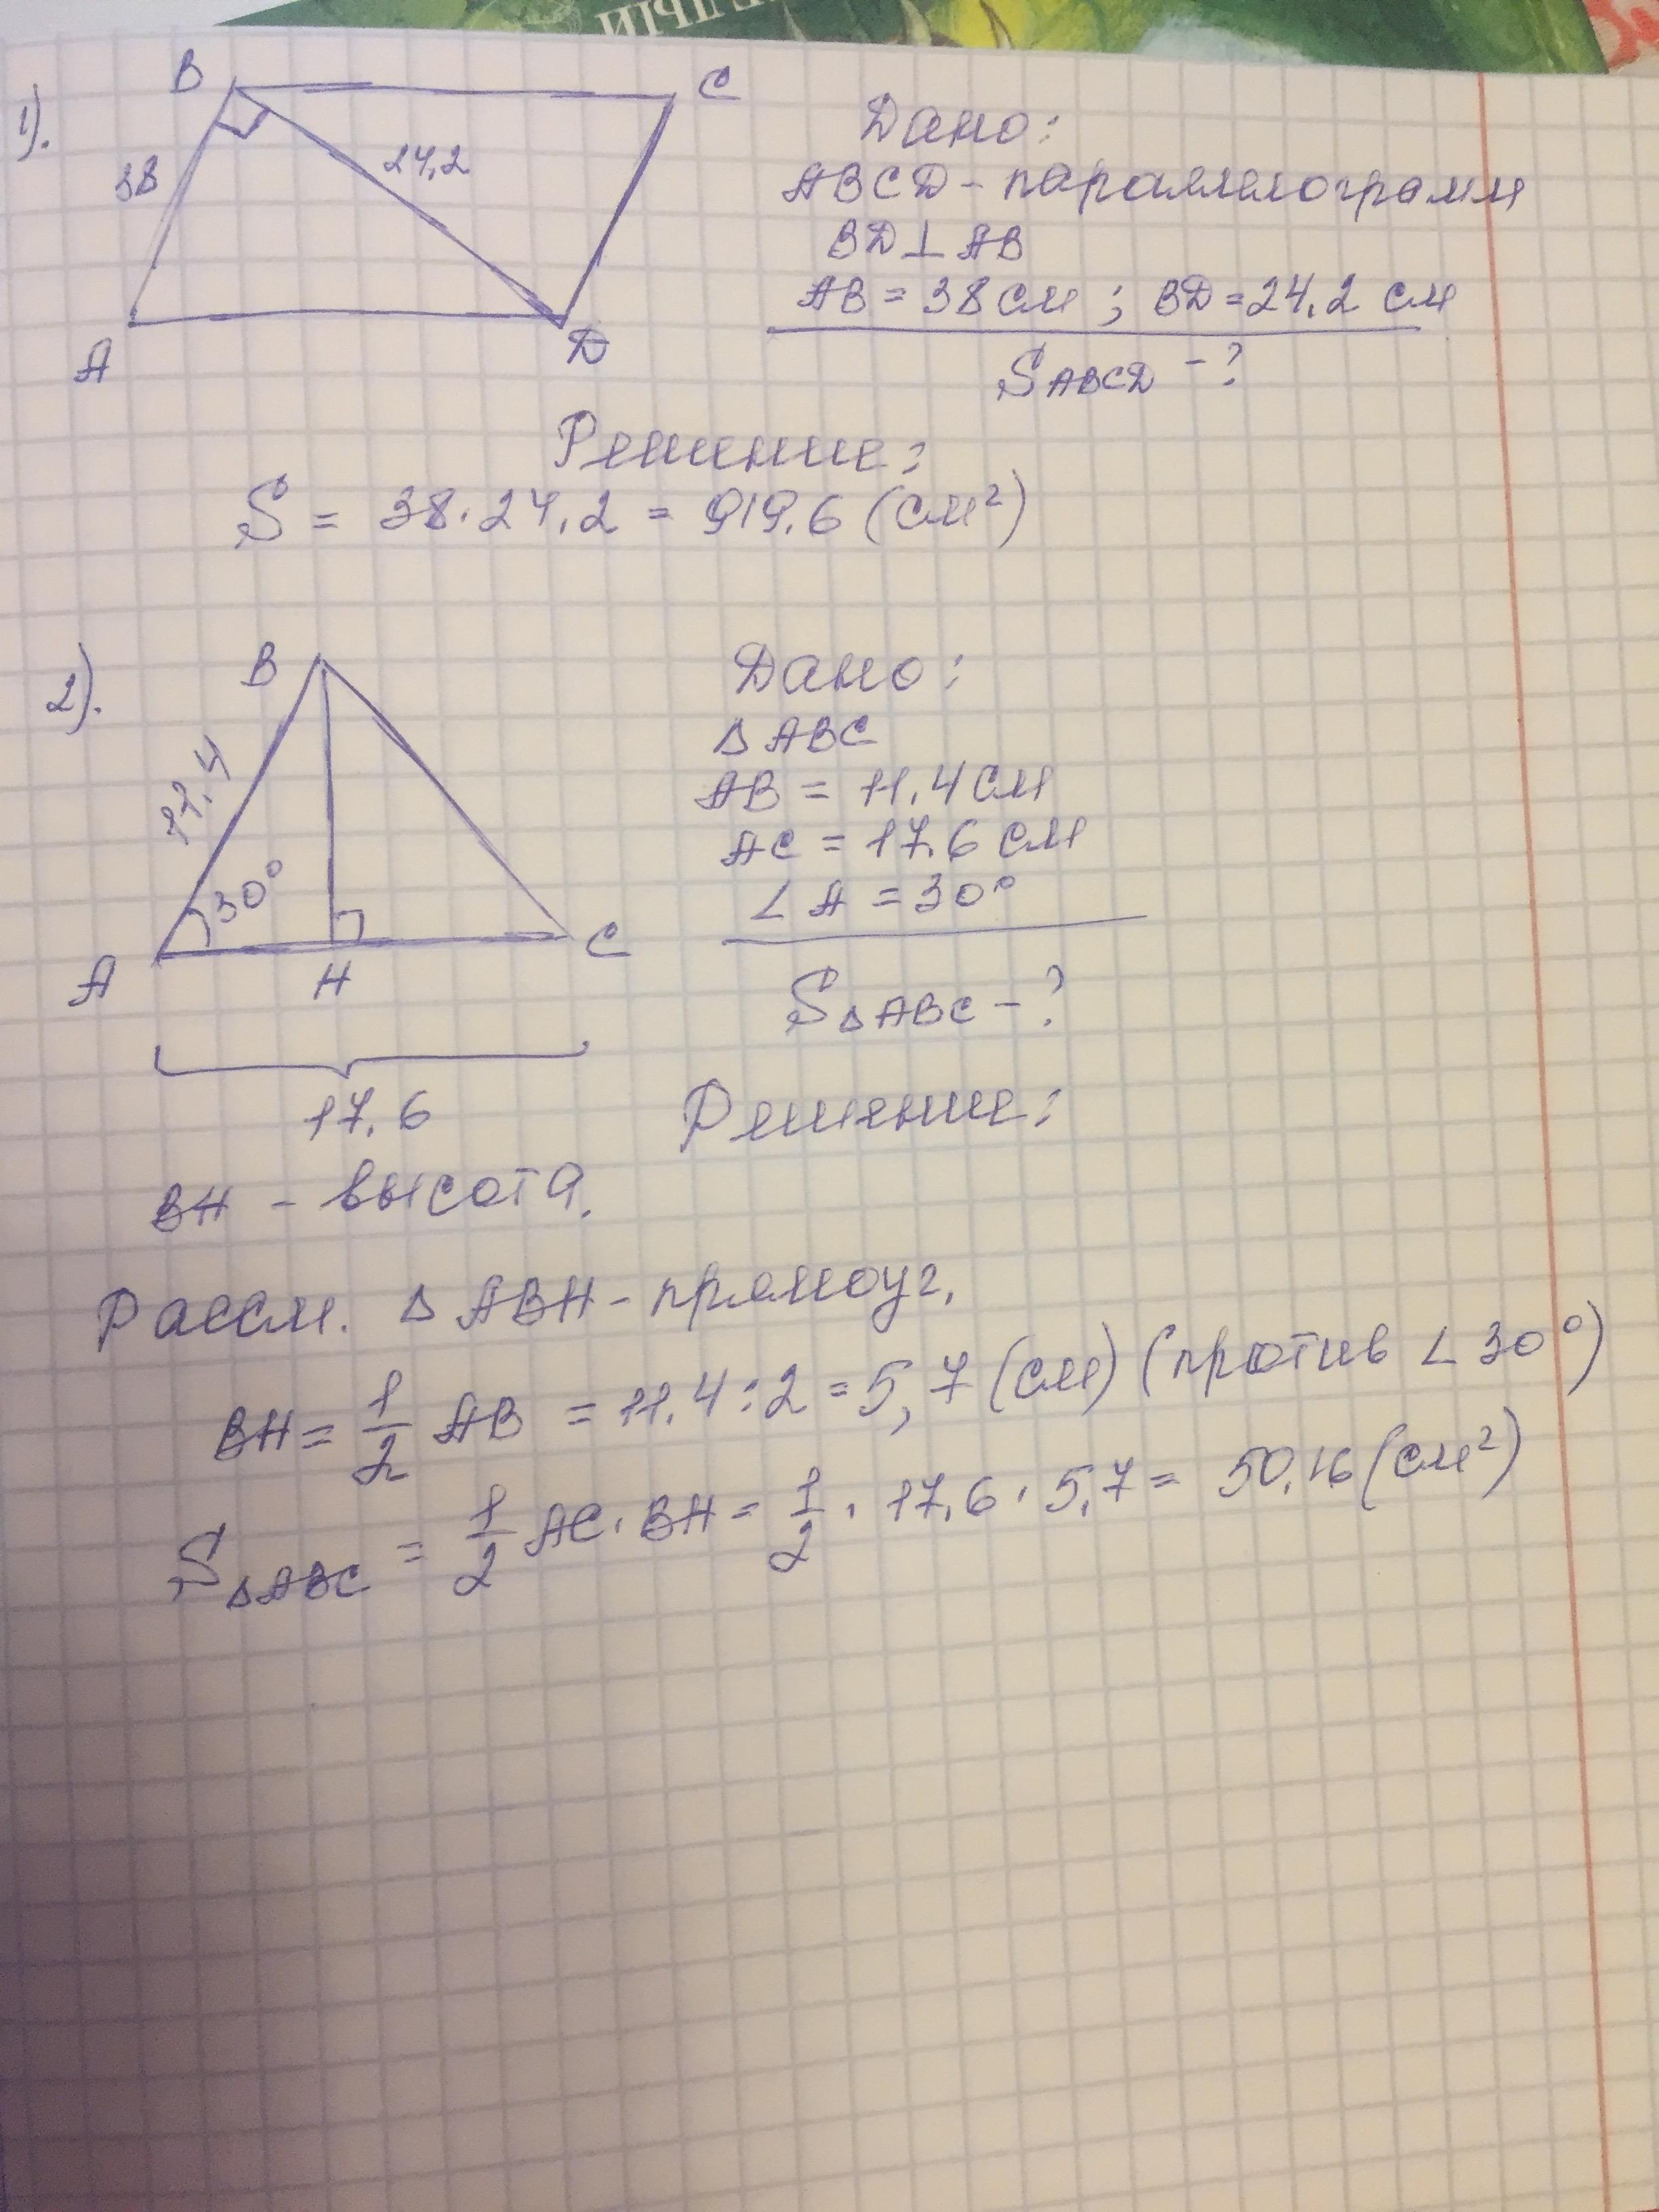 1).
B
C
38
24,2
A
D
Дано:
ABCD - параллелограмм
BD ⊥ AB
AB = 38 см ; BD = 24,2 см
S ABCD - ?
Решение:
S = 38 · 24,2 = 919,6 (см²)
2).
B
11,4
30°
A
H
C
17,6
Дано:
Δ ABC
AB = 11,4 см
AC = 17,6 см
∠ A = 30°
S Δ ABC - ?
Решение:
BH - высота.
Рассм. Δ ABH - прямоуг.
BH = 1/2 AB = 11,4 : 2 = 5,7 (см) (против ∠ 30°)
S Δ ABC = 1/2 AC · BH = 1/2 · 17,6 · 5,7 = 50,16 (см²)